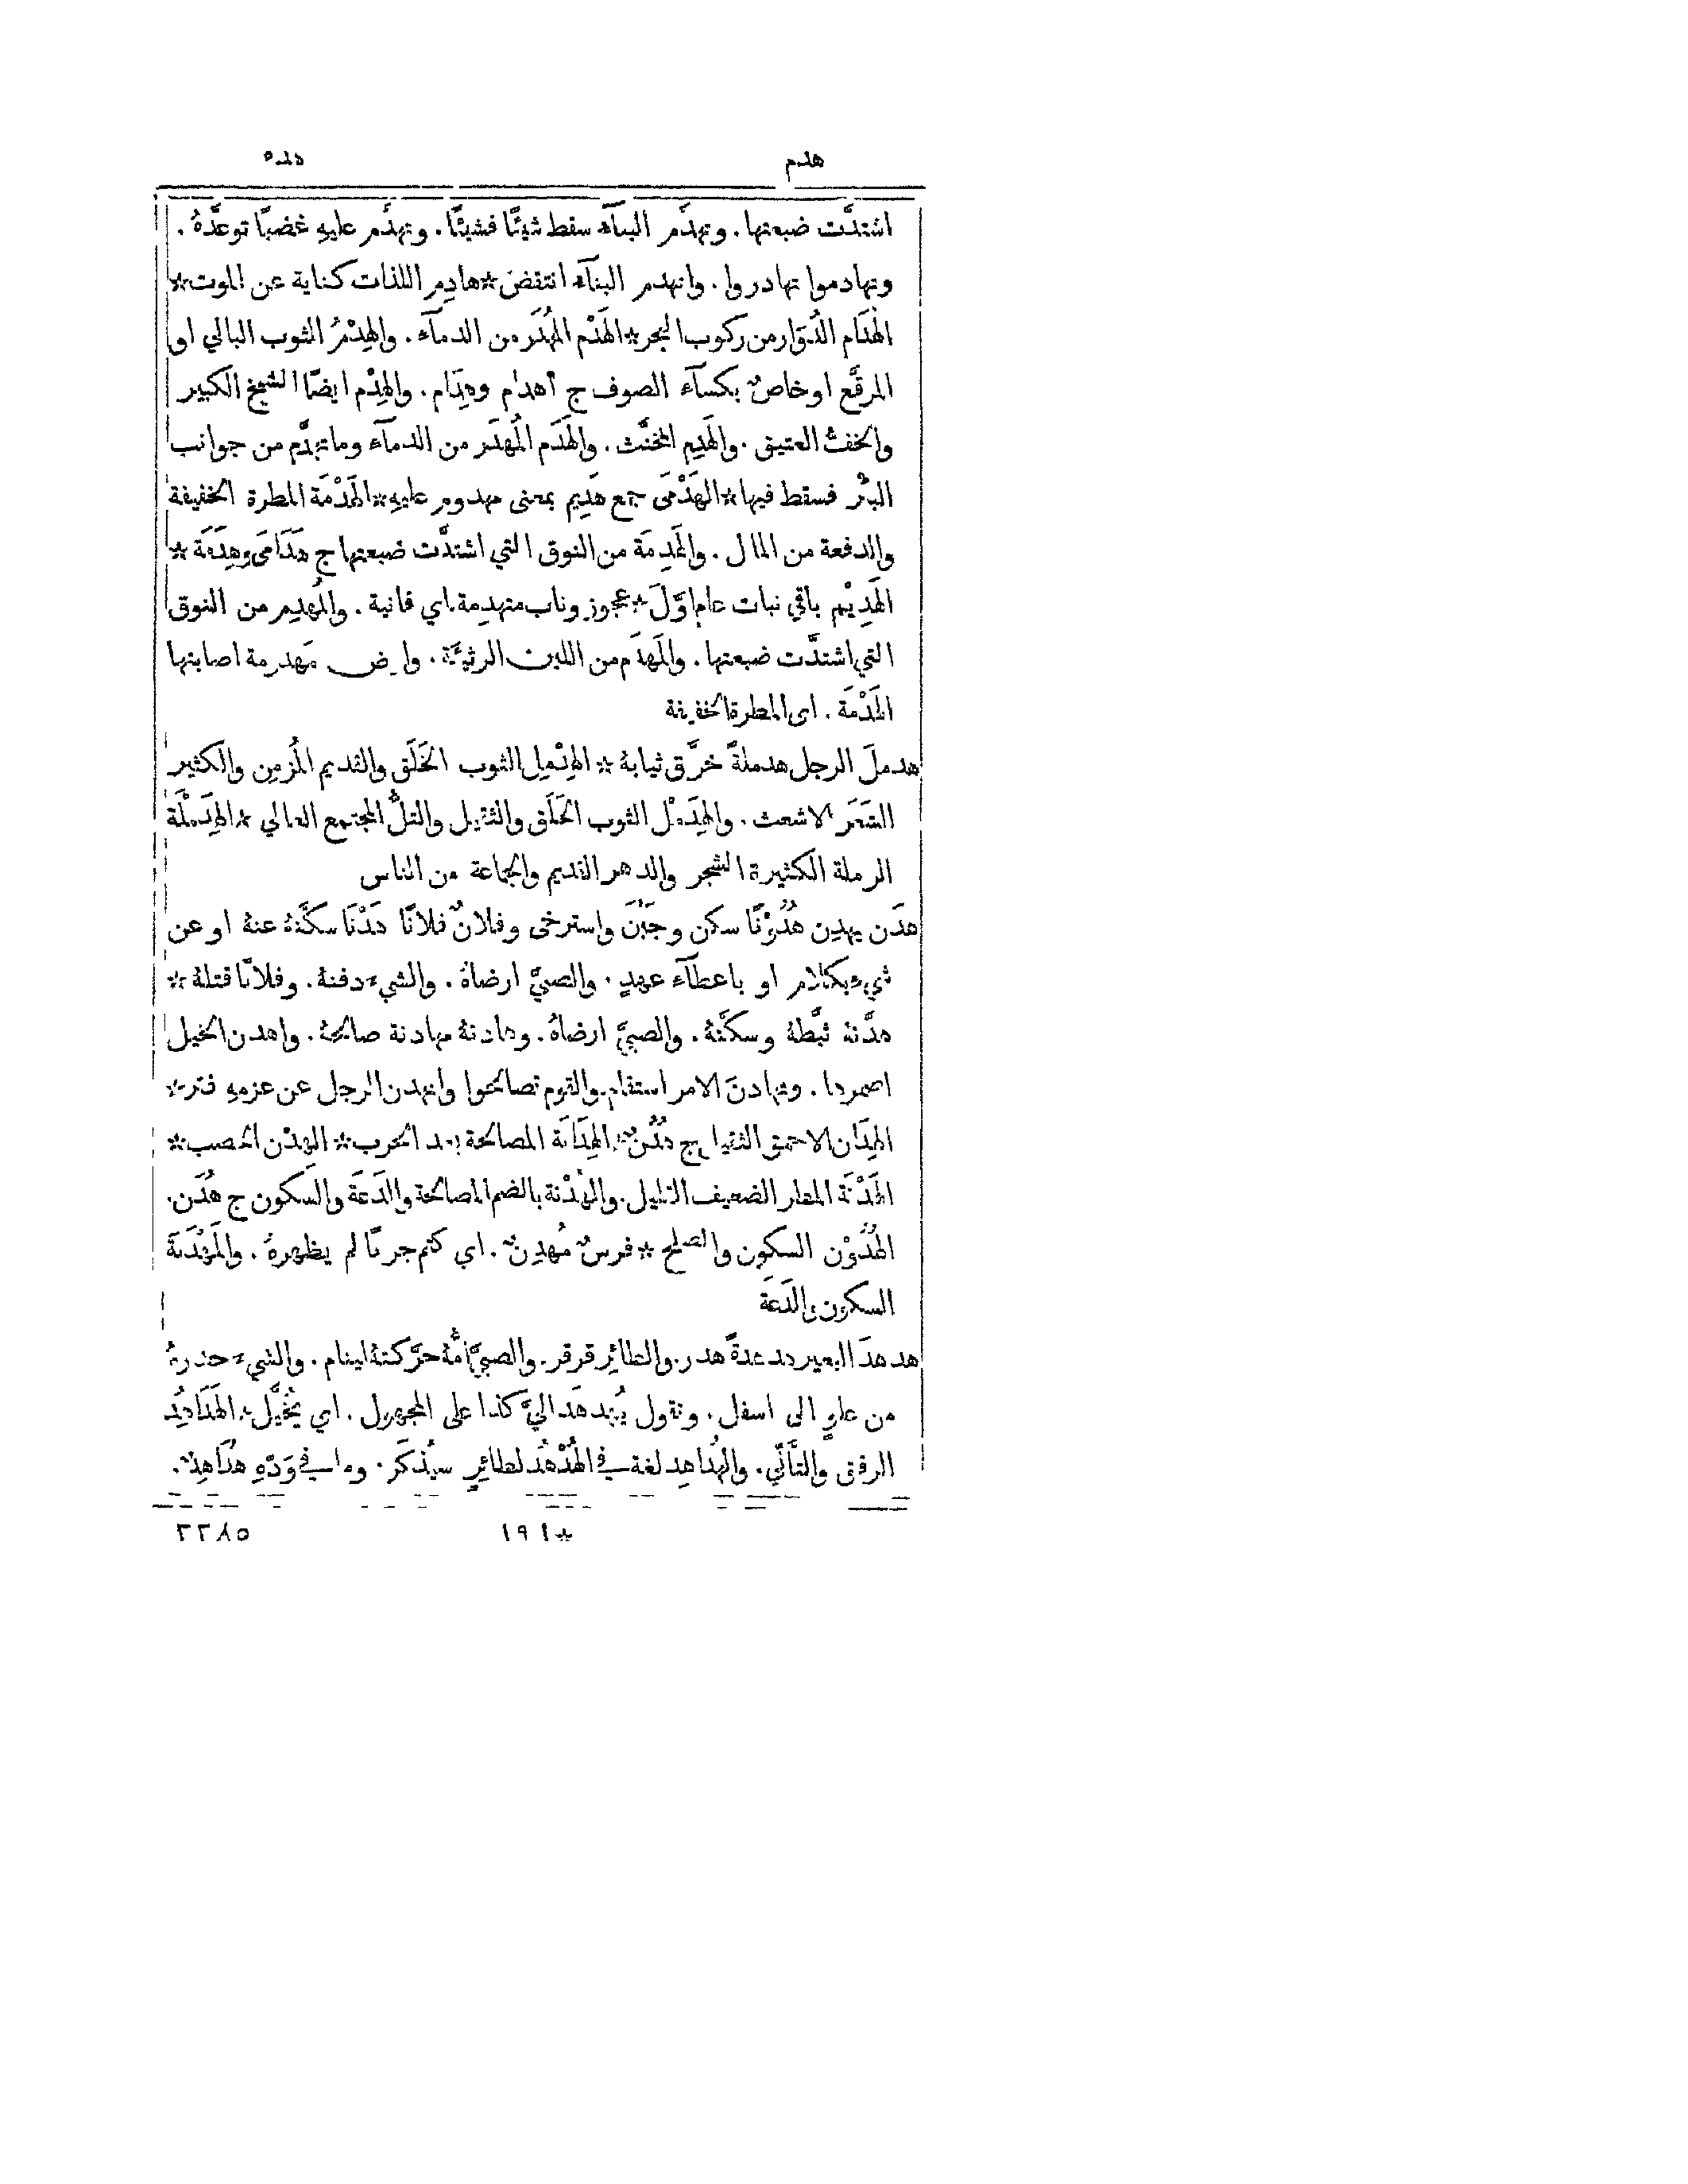 هدم
هده
اشتدَّت ضبعتها. وتهدَّم البنآء سقط شيئًا فشيئًا. وتهدَّم عليهِ غضبًا توعَّدهُ.
وتهادموا تهادروا. وانهدم البنآء انتقض * هادِم اللذات كناية عن الموت *
الهُدَام الدُوَار من ركوب البحر * الهَدْم المُهْدَر من الدمآء. والهِدْمُ الثوب البالي او
المرقَّع او خاصٌ بكسآء الصوف ج أهدام وهِدَام. والهِدْم ايضًا الشيخ الكبير
والخفُّ العتيق. والهَدِم المخنَّث. والهَدَم المُهدَر من الدمآء وما تهدَّم من جوانب
البئر فسقط فيها * الهَدْمَى جمع هَدِيم بمعنى مهدوم عليهِ * الهَدْمَة المطرة الخفيفة
والدفعة من المال. والهَدِمَة من النوق التي اشتدَّت ضبعتها ج هَدَامَى وهِدَمَة *
الهَدِيْم باقي نبات عام اوَّلَ * عجوز وناب منهدِمة. اي فانية. والمُهدِم من النوق
التي اشتدَّت ضبعتها. والمَهدَم من اللبن الرثيئة. وارض مَهدومة اصابتها
الهَدْمَة. اي المطرة الخفيفة
هدملَ الرجل هدملةً خرَّق ثيابهُ * الهِدْمِل الثوب الخَلَق والقديم المُزمِن والكثير
الشَعَر الاشعث. والهِدَمْل الثوب الخَلَق والثقيل والتلُّ المجتمع العالي * الهِدَمْلَة
الرملة الكثيرة الشجر والدهر القديم والجماعة من الناس
هدَن يهدِن هُدُوْنًا سكن وجَبُنَ واسترخى وفلانٌ فلانًا هَدْنًا سكَّنهُ عنهُ او عن
شيءٍ بكلام او باعطآء عهدٍ. والصبيَّ ارضاهُ. والشيءَ دفنهُ. وفلانًا قتلهُ *
هدَّنهُ ثبَّطهُ وسكَّنهُ. والصبيَّ ارضاهُ. وهادنهُ مهادنة صالحهُ. واهدن الخيل
اضمرها. وتهادنَ الامر استقام. والقوم تصالحوا وانهدن الرجل عن عزمهِ فتر *
الهِدَان الاحمق الثقيل ج هُدُنٌ * الهِدَانَة المصالحة بعد الحرب * الهِدْن الخصب *
الهَدْنَة المطر الضعيف القليل. والهُدْنة بالضم المصالحة والدَعَة والسكون ج هُدَن.
الهُدُوْن السكون والصلح * فرسٌ مُهدِنٌ. اي كتم جريًا لم يظهرهُ. والمَهْدَنَة
السكون والدَعَة
هدهدَ البعير هدهدةً هدر. والطائِر قرقر. والصبيَّ امُّهُ حرَّكتهُ لينام. والشيءَ حدرهُ
من علوٍ الى اسفل. وتقول يُهَدهَد اليَّ كذا على المجهول. اي يُخيَّل * الهَدَاهِد
الرفق والتأَنّي. والهُدَاهِد لغة في الهُدْهُد لطائِرٍ سيُذكَر. وما في وَدِّهِ هُدَاهِدٌ.
*١٩١
٢٢٨٥